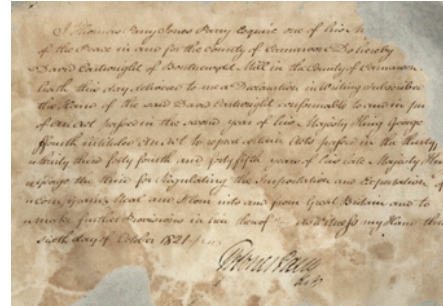 I Thomas Parry Jones Parry Esquire one of his M
of the Peace in and for the County of Carnarvon Do hereby
David Cartwright of Bontnewydd Mill in the County of Carnarvon
hath this day delivered to me a Declaration in Writing subscribed
the Name of the said David Cartwright conformable to and in pu
of an Act passed in the second year of his Majesty King George
ffourth intituled An Act to repeal certain Acts passed in the thirty
ninety third forty fourth and forty fifth years of his late Majesty King
George the third for Regulating the Importation and Exportation of
Corn, Grain, Meal and Flour into and from Great Britain and to
make further Provisions in lieu thereof As witness my Hand this
Sixth day of October 1821